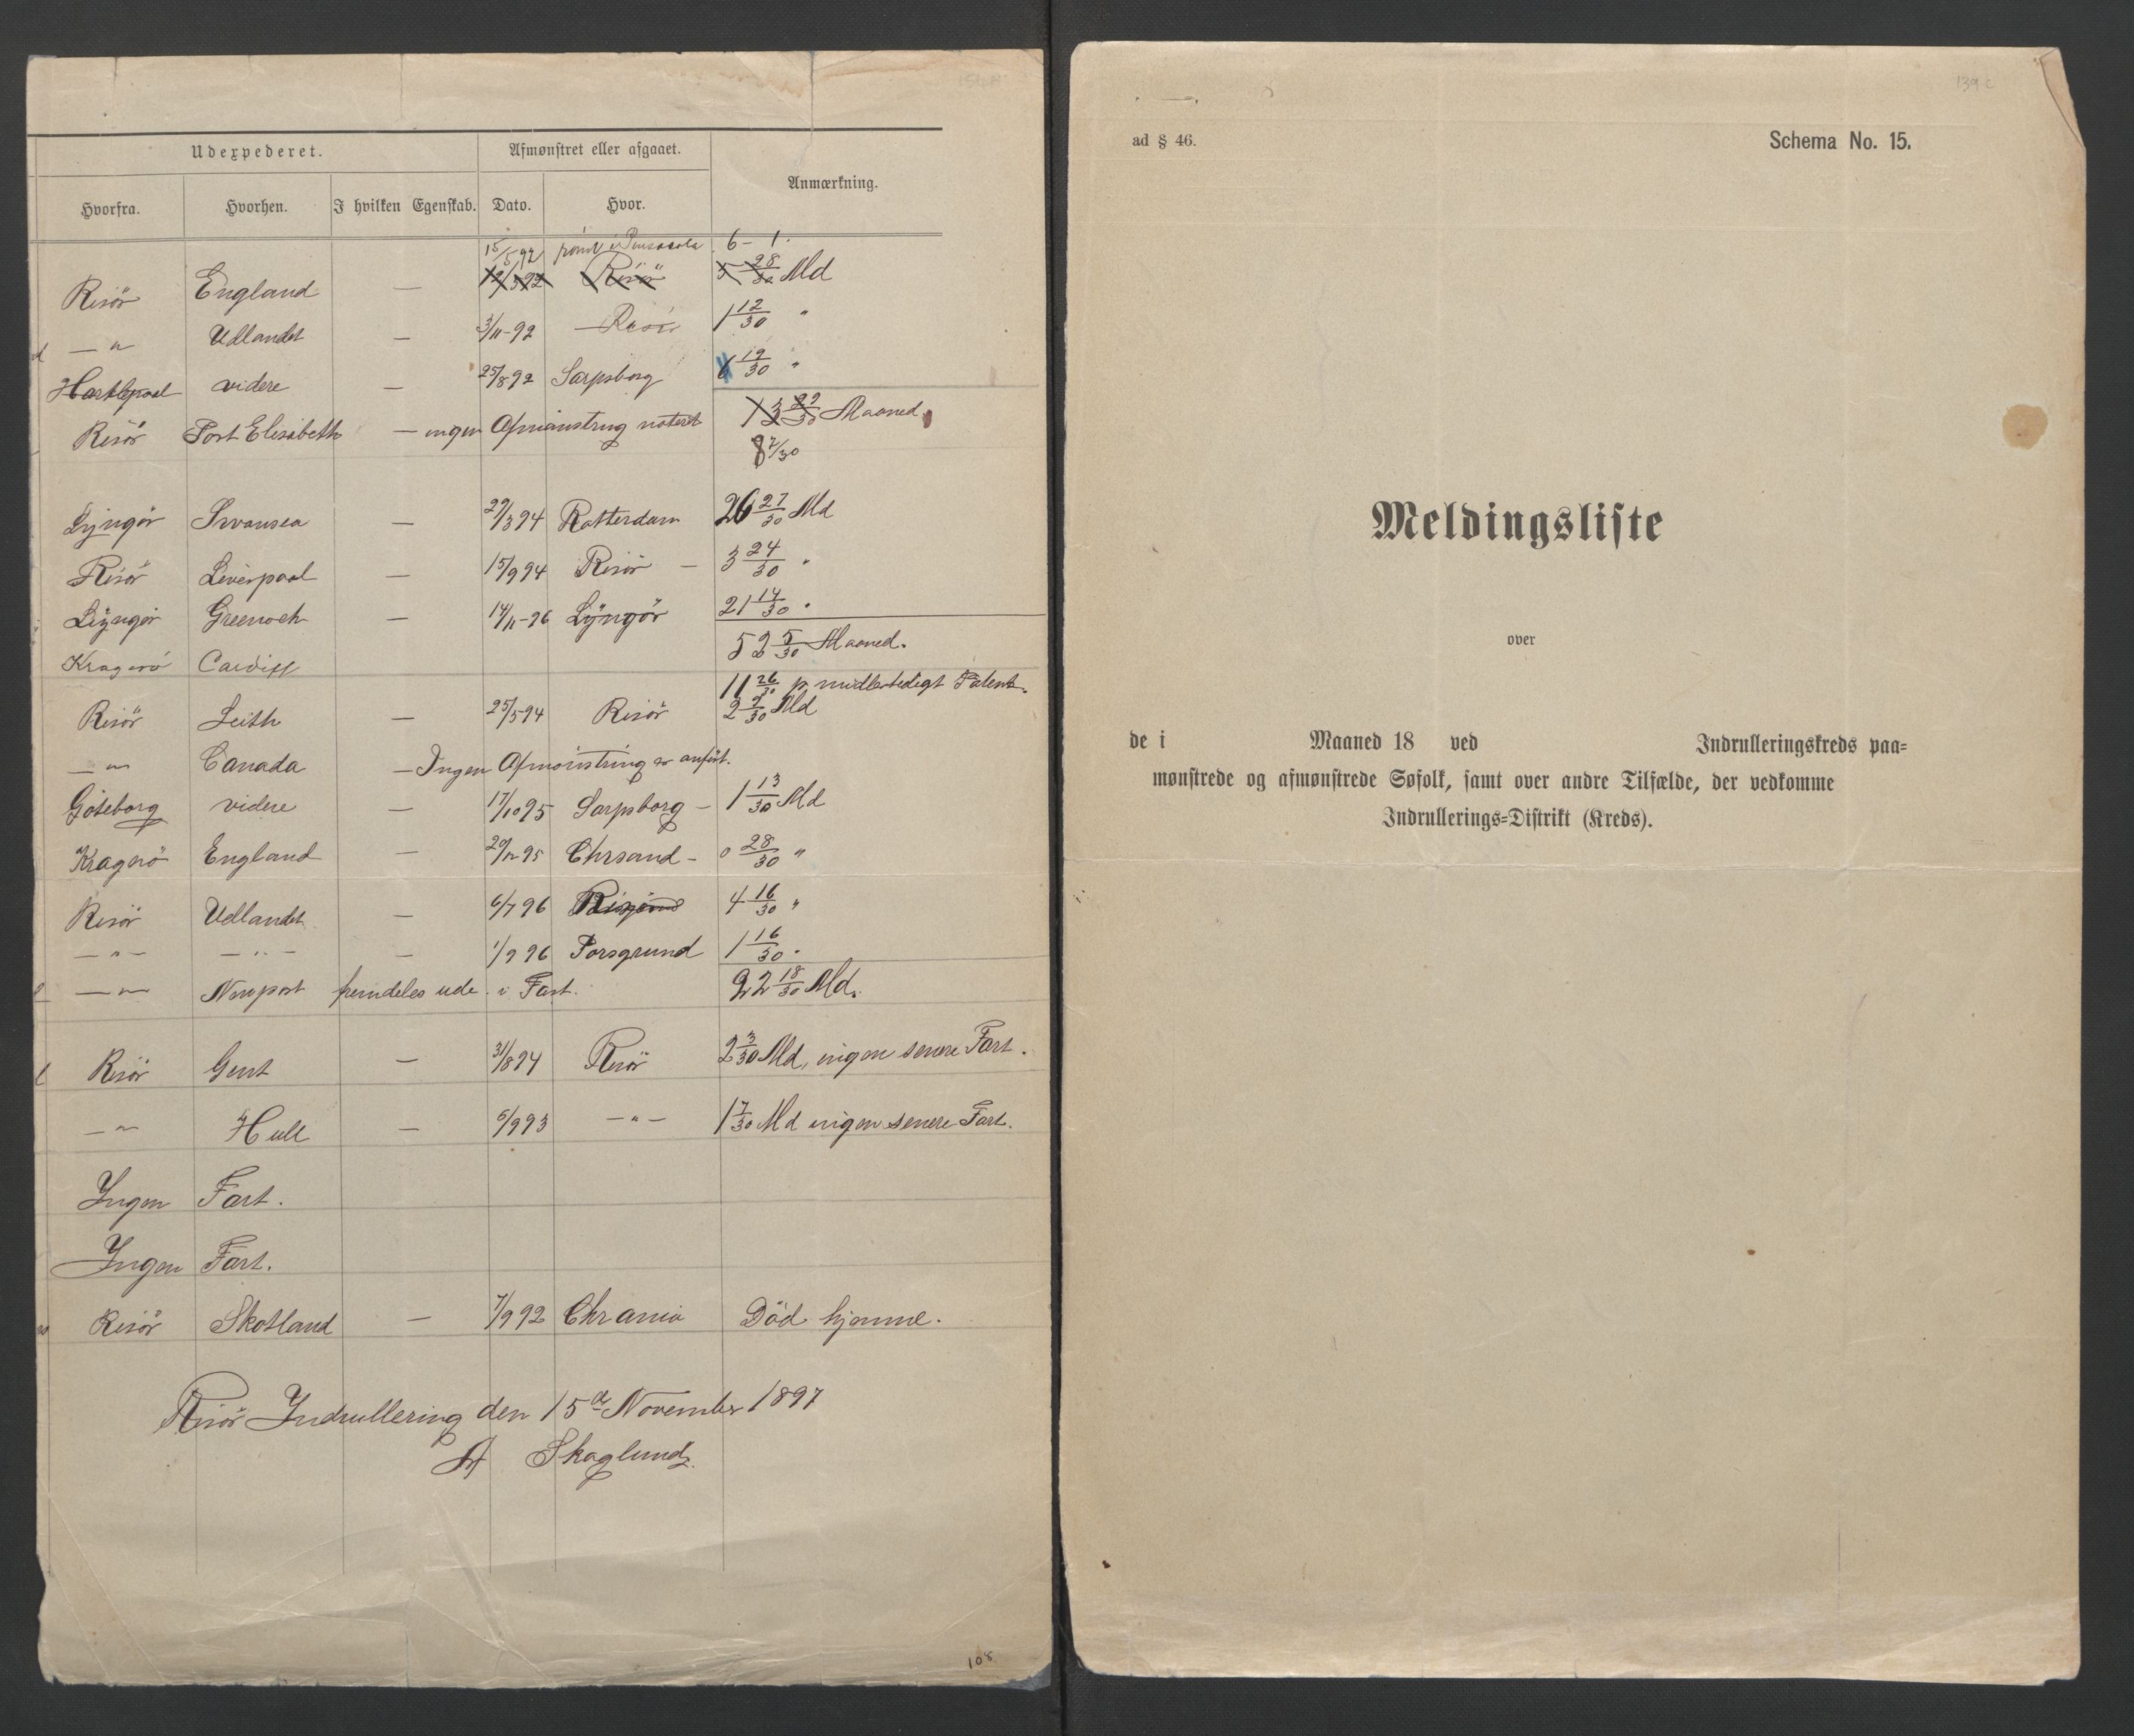 Udexpederet. Afmønstret eller afgaaet. Anmærkning.
Hvorfra. Hvorhen. I hvilken Egenskab. Dato. Hvor.
15/5 92 Pensacola 6 - 1.
Risör England — 12/5 92 Risör 5 28/30 Md
— " Udlandet — 3/11-92 Risör 1 12/30 "
Hartlepool videre — 25/8 92 Sarpsborg 6 19/30 "
Risör Port Elisabeth — ingen Afmönstring noteret 13 29/30 Maaned.
8 7/30
Lyngör Swansea — 29/3 94 Rotterdam 26 27/30 Md
Risör Liverpool — 15/9 94 Risör — 3 24/30 "
Lyngör Greenoch — 14/11-96 Lyngör 21 14/30 "
52 5/30 Maaned.
Kragerö Cardiff
11 26/30 p. midlertidigt Patent.
Risör Leith — 25/5 94 Risör 2 2/30 Md
— " — Canada — Ingen Afmönstring er anfört.
Göteborg videre — 17/10 95 Sarpsborg — 1 13/30 Md
Kragerö England — 29/12 95 Chrsand — 0 28/30 "
Risör Udlandet — 6/7 96 4 16/30 "
— " — — " — — 1/9 96 Porsgrund 1 16/30 "
— " — Newport fremdeles ude i Fart. 22 18/30 Md.
Risör Gent — 31/8 94 Risör 2 3/30 Md, ingen senere Fart.
— " — Hull — 5/9 93 — " — 1 7/30 Md ingen senere Fart.
Ingen Fart.
Ingen Fart.
Risör Skotland — 7/9 92 Chrania Död hjemme.
Risör Indrullering den 15de November 1897
A Skaglund
108
139 c
ad § 46. Schema No. 15.
Meldingsliste
over
de i Maaned 18 ved Indrulleringskreds paa=
mønstrede og afmønstrede Søfolk, samt over andre Tilfælde, der vedkomme
Indrullerings=Distrikt (Kreds).